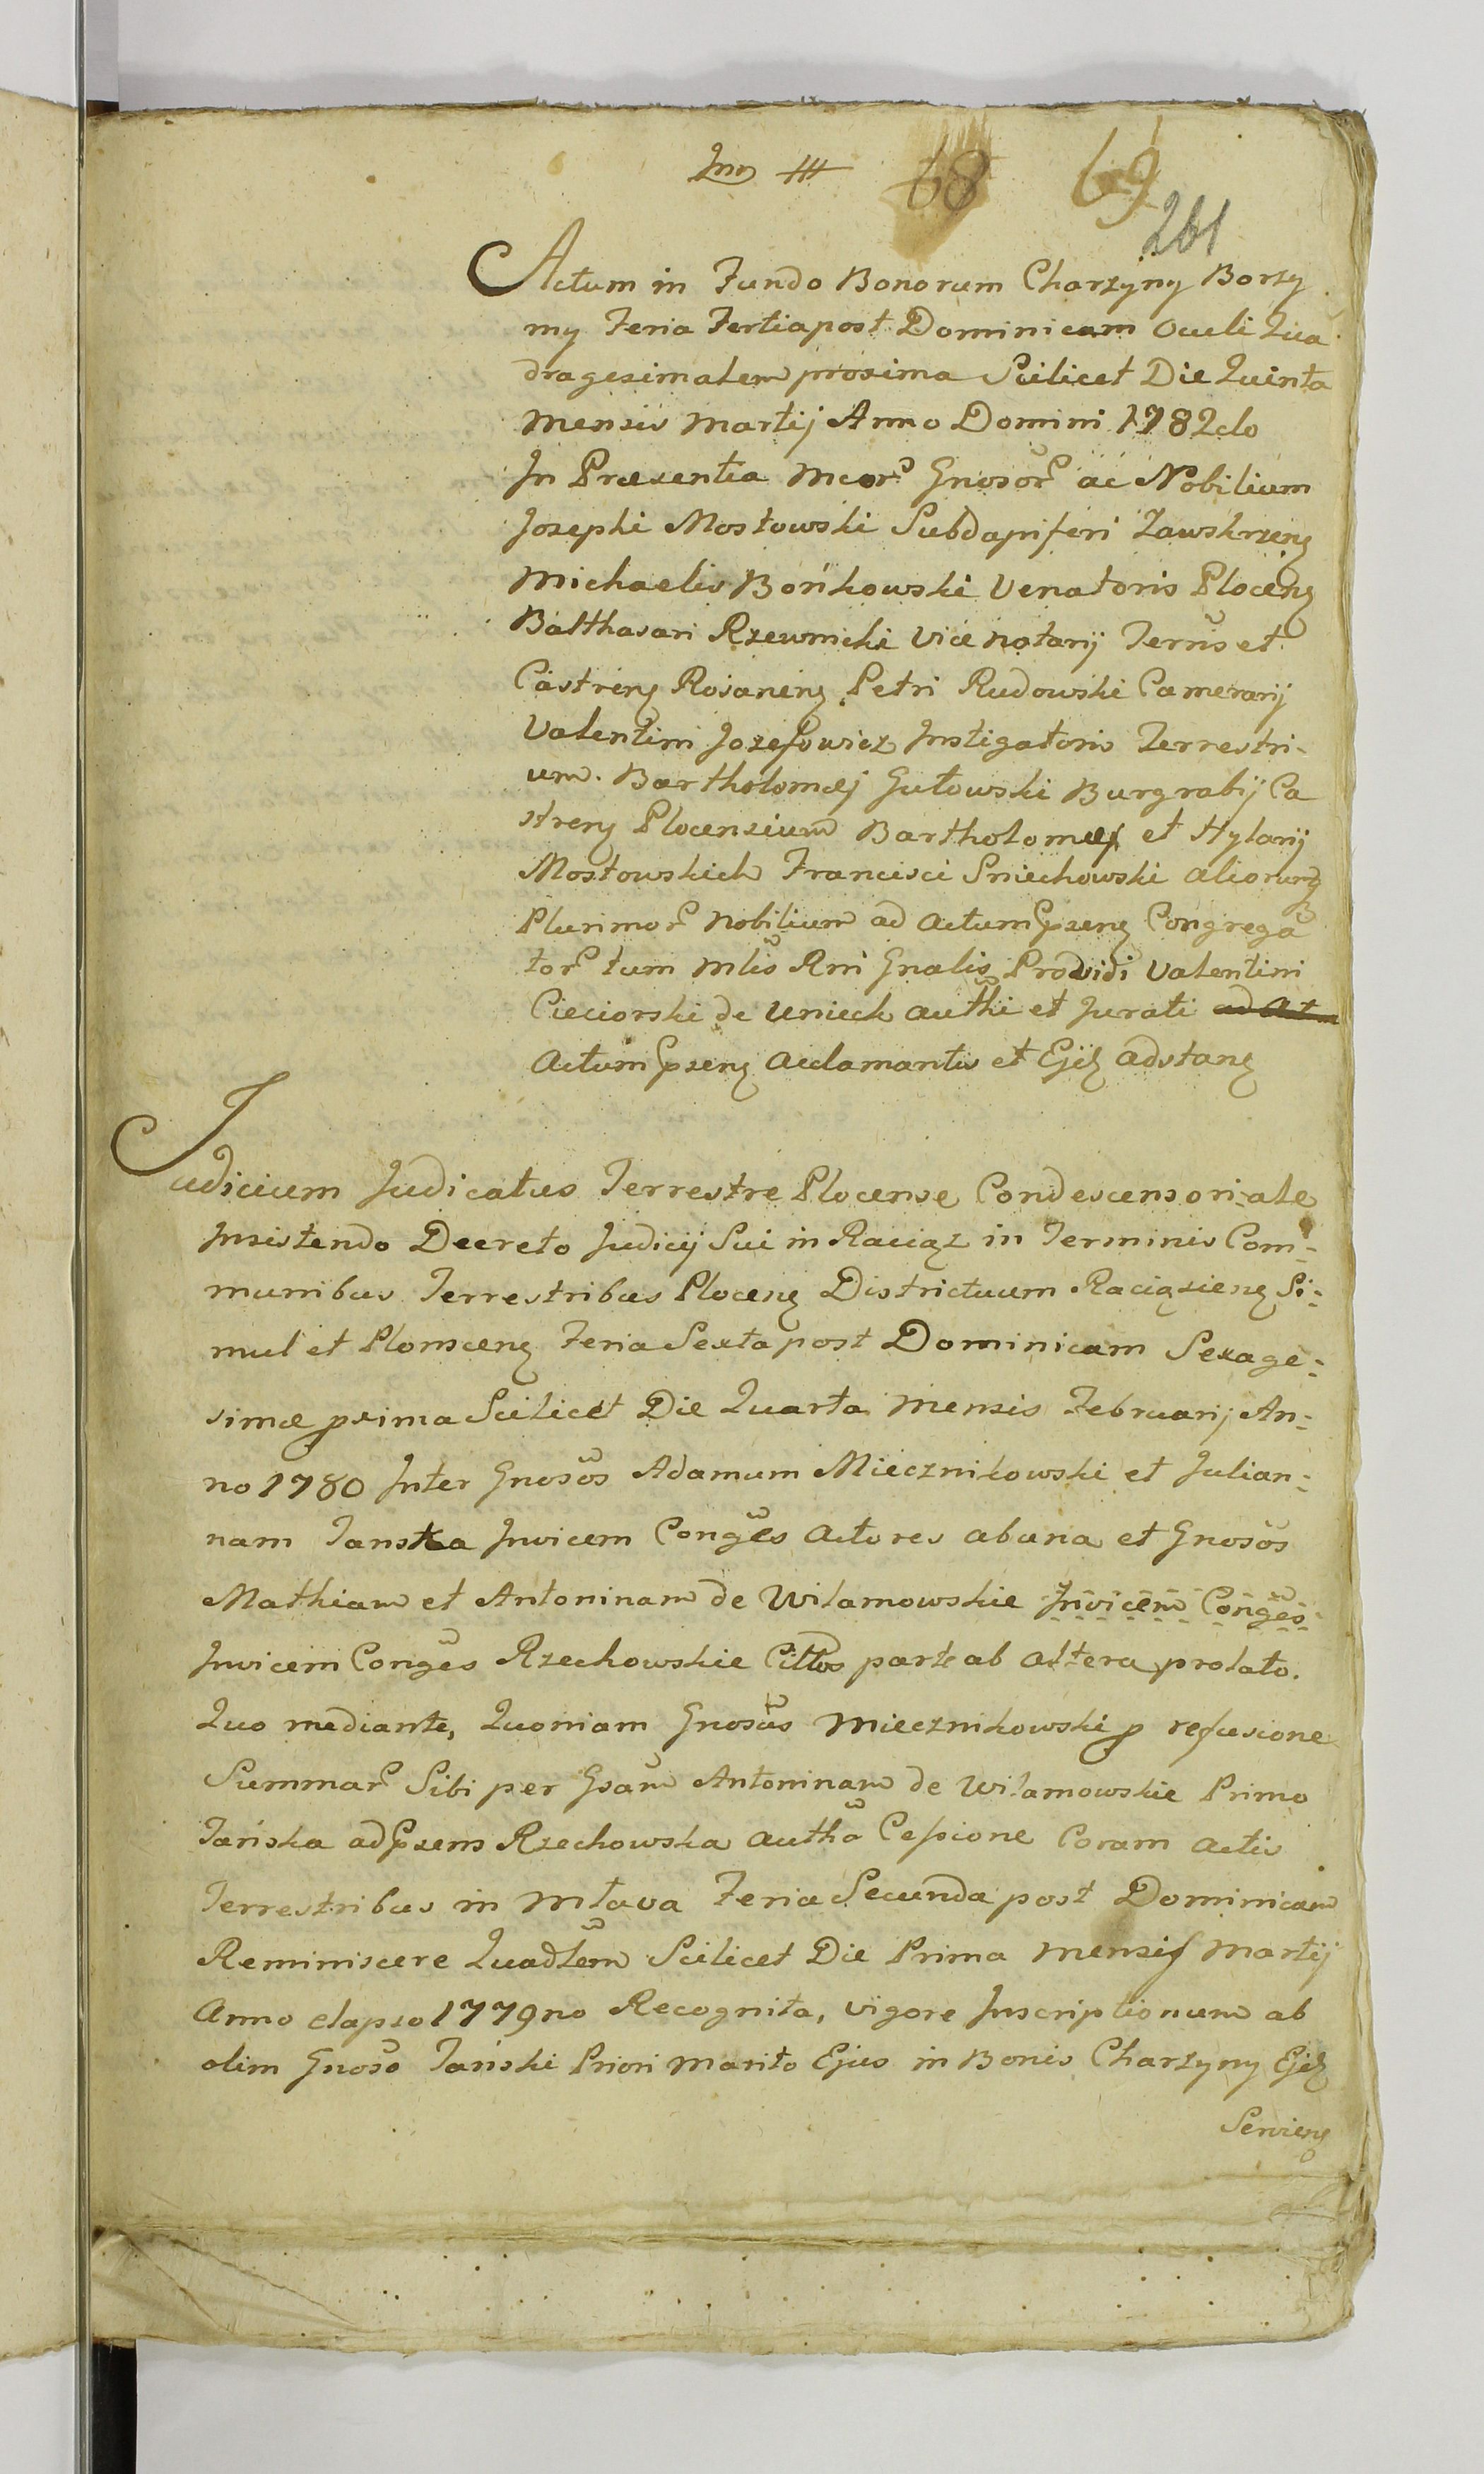 68 69
261
Actum in Fundo Bonorum Charzyny Borzy
my Feria Tertia post Dominicam Oculi Qua
dragesimalem proxima Scilicet Die Quinta
Mensis Martij Anno Domini 1782do
In Præsentia Mcor Gnosor ac Nobilium
Josephi Mostowski Subdapiferi Zawskrzen
Michaelis Bońkowski Venatoris Plocen
Balthasari Rzewnicki Vice Notarij Terris et
Castren Rosanen Petri Rudowski Camerarij
Valentini Jozefowicz Instigatoris Terrestri-
um. Bartholomæj Gutowski Burgrabij Ca
stren Plocensium Bartholomæj et Hylarij
Mostowskich Francisci Sniechowski aliorumq
Plurimor Nobilium ad Actum Psens Congrega
tor tum Mlis Rni Gnalis Providi Valentini
Cieciorski de Uniech authi et Jurati ad At
Actum Psens Acclamantis et Ejd adstan
Judicium Judicatus Terrestre Plocense Condescensoriale
Insistendo Decreto Judicij Sui in Raciąz in Terminis Com-
munibus Terrestribus Plocen Districtuum Raciązien Si-
mul et Plonscen Feria Sexta post Dominicam Sexage-
simæ pxima Scilicet Die Quarta Mensis Februarij An-
no 1780 Inter Gnosos Adamum Miecznikowski et Julian-
nam Tanska Invicem Conges Actores ab una et Gnosos
Mathiam et Antoninam de Wilamowskie Invicem Conges
Invicem Conges Rzechowskie Cittos parte ab altera prolato.
Quo mediante, Quoniam Gnosus Miecznikowski p refusione
Summar Sibi per Gsam Antoninam de Wilamowskie Primo
Tańska ad Psens Rzechowska autha Cessione Coram Actis
Terrestribus in Mława Feria Secunda post Dominicam
Reminiscere Quadlem Scilicet Die Prima Mensis Martij
Anno elapso 1779no Recognita, vigore Inscriptionum ab
olim Gnoso Tański Priori Marito Ejus in Bonis Charzyny Ejd
Servien